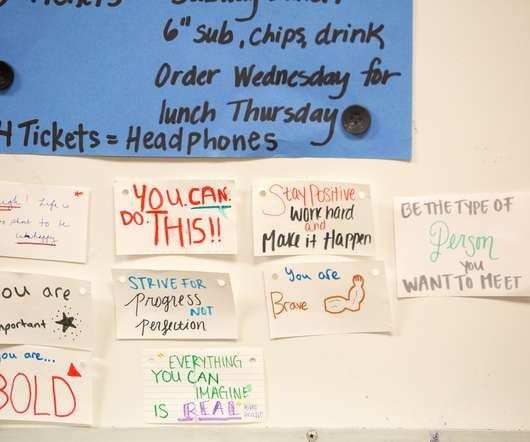 Tickets
6" sub, chips, drink
Order Wednesday for
lunch Thursday
Tickets = Headphones
! Life is
short to be
unhappy
YOU CAN
DO THIS!!
Stay Positive
Work hard
and
Make it Happen
BE THE TYPE OF
Person
YOU
WANT TO MEET
you are
important
STRIVE FOR
Progress
NOT
perfection
You are
Brave
you are...
BOLD
EVERYTHING
YOU CAN
IMAGINE
IS REAL